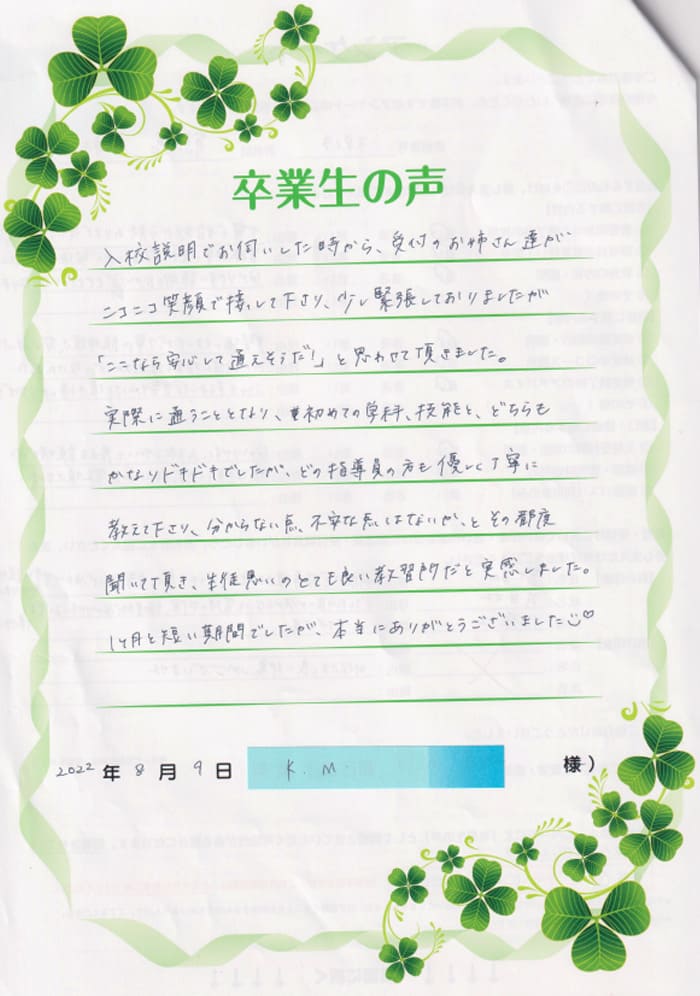 卒業生の声
入校説明でお伺いした時から、受付のお姉さん達が
ニコニコ笑顔で接して下さり、少し緊張しておりましたが
「ここなら安心して通えそうだ!」と思わせて頂きました。
実際に通うこととなり、初めての学科、技能と、どちらも
かなりドキドキでしたが、どの指導員の方も優しく丁寧に
教えて下さり、分からない点、不安な点はないか、とその都度
聞いて頂き、生徒思いのとても良い教習所だと実感しました。
1ヶ月と短い期間でしたが、本当にありがとうございました
2022年8月9日 K.M 様)